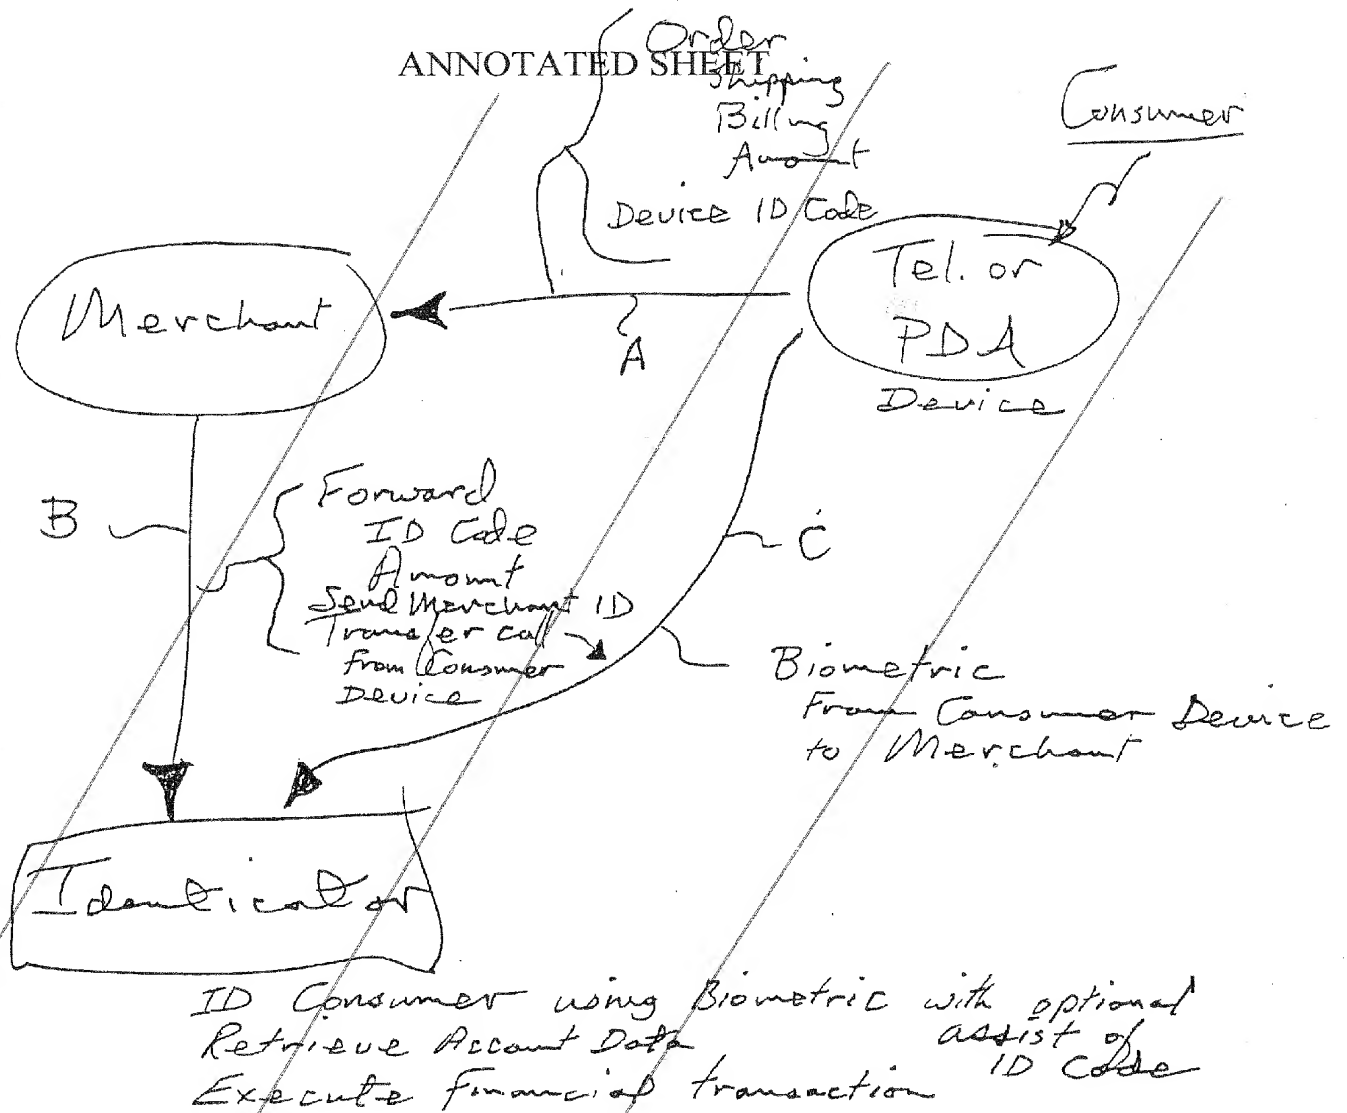 ANNOTATED SHEET
Order
Shipping
Billing
Amount
Device ID Code
Consumer
Tel. or
PDA
Device
Merchant
A
B
Forward
ID Code
Amount
Send Merchant ID
Transfer call
from Consumer
Device
C
Biometric
From Consumer Device
to Merchant
Identicator
ID Consumer using Biometric with optional
assist of
ID Code
Retrieve Account Data
Execute Financial transaction